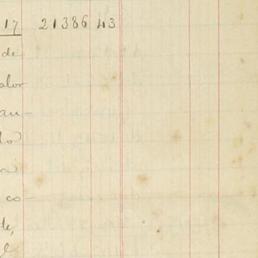 17 21386 43
de
alor
au-
do
a
co-
te,
l